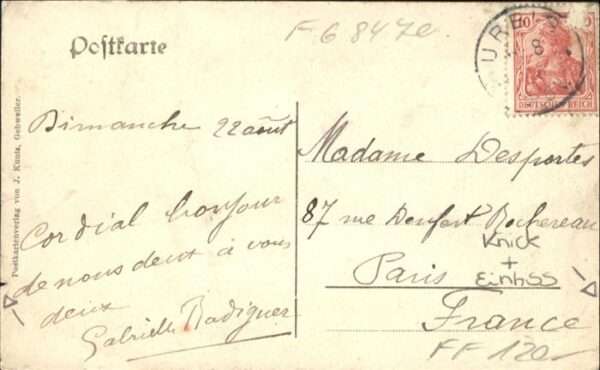 Postkarte
F 6 847e
URBEIS
8
10
DEUTSCHES REICH
Postkartenverlag von J. Kuntz, Gebweiler.
Dimanche 22 août
Cordial bonjour
de nous deux à vous
deux
Gabrielle Radiguer
Madame Desportes
87 rue Denfert Rochereau
Knick
+
Paris Einriss
France
FF 120,-